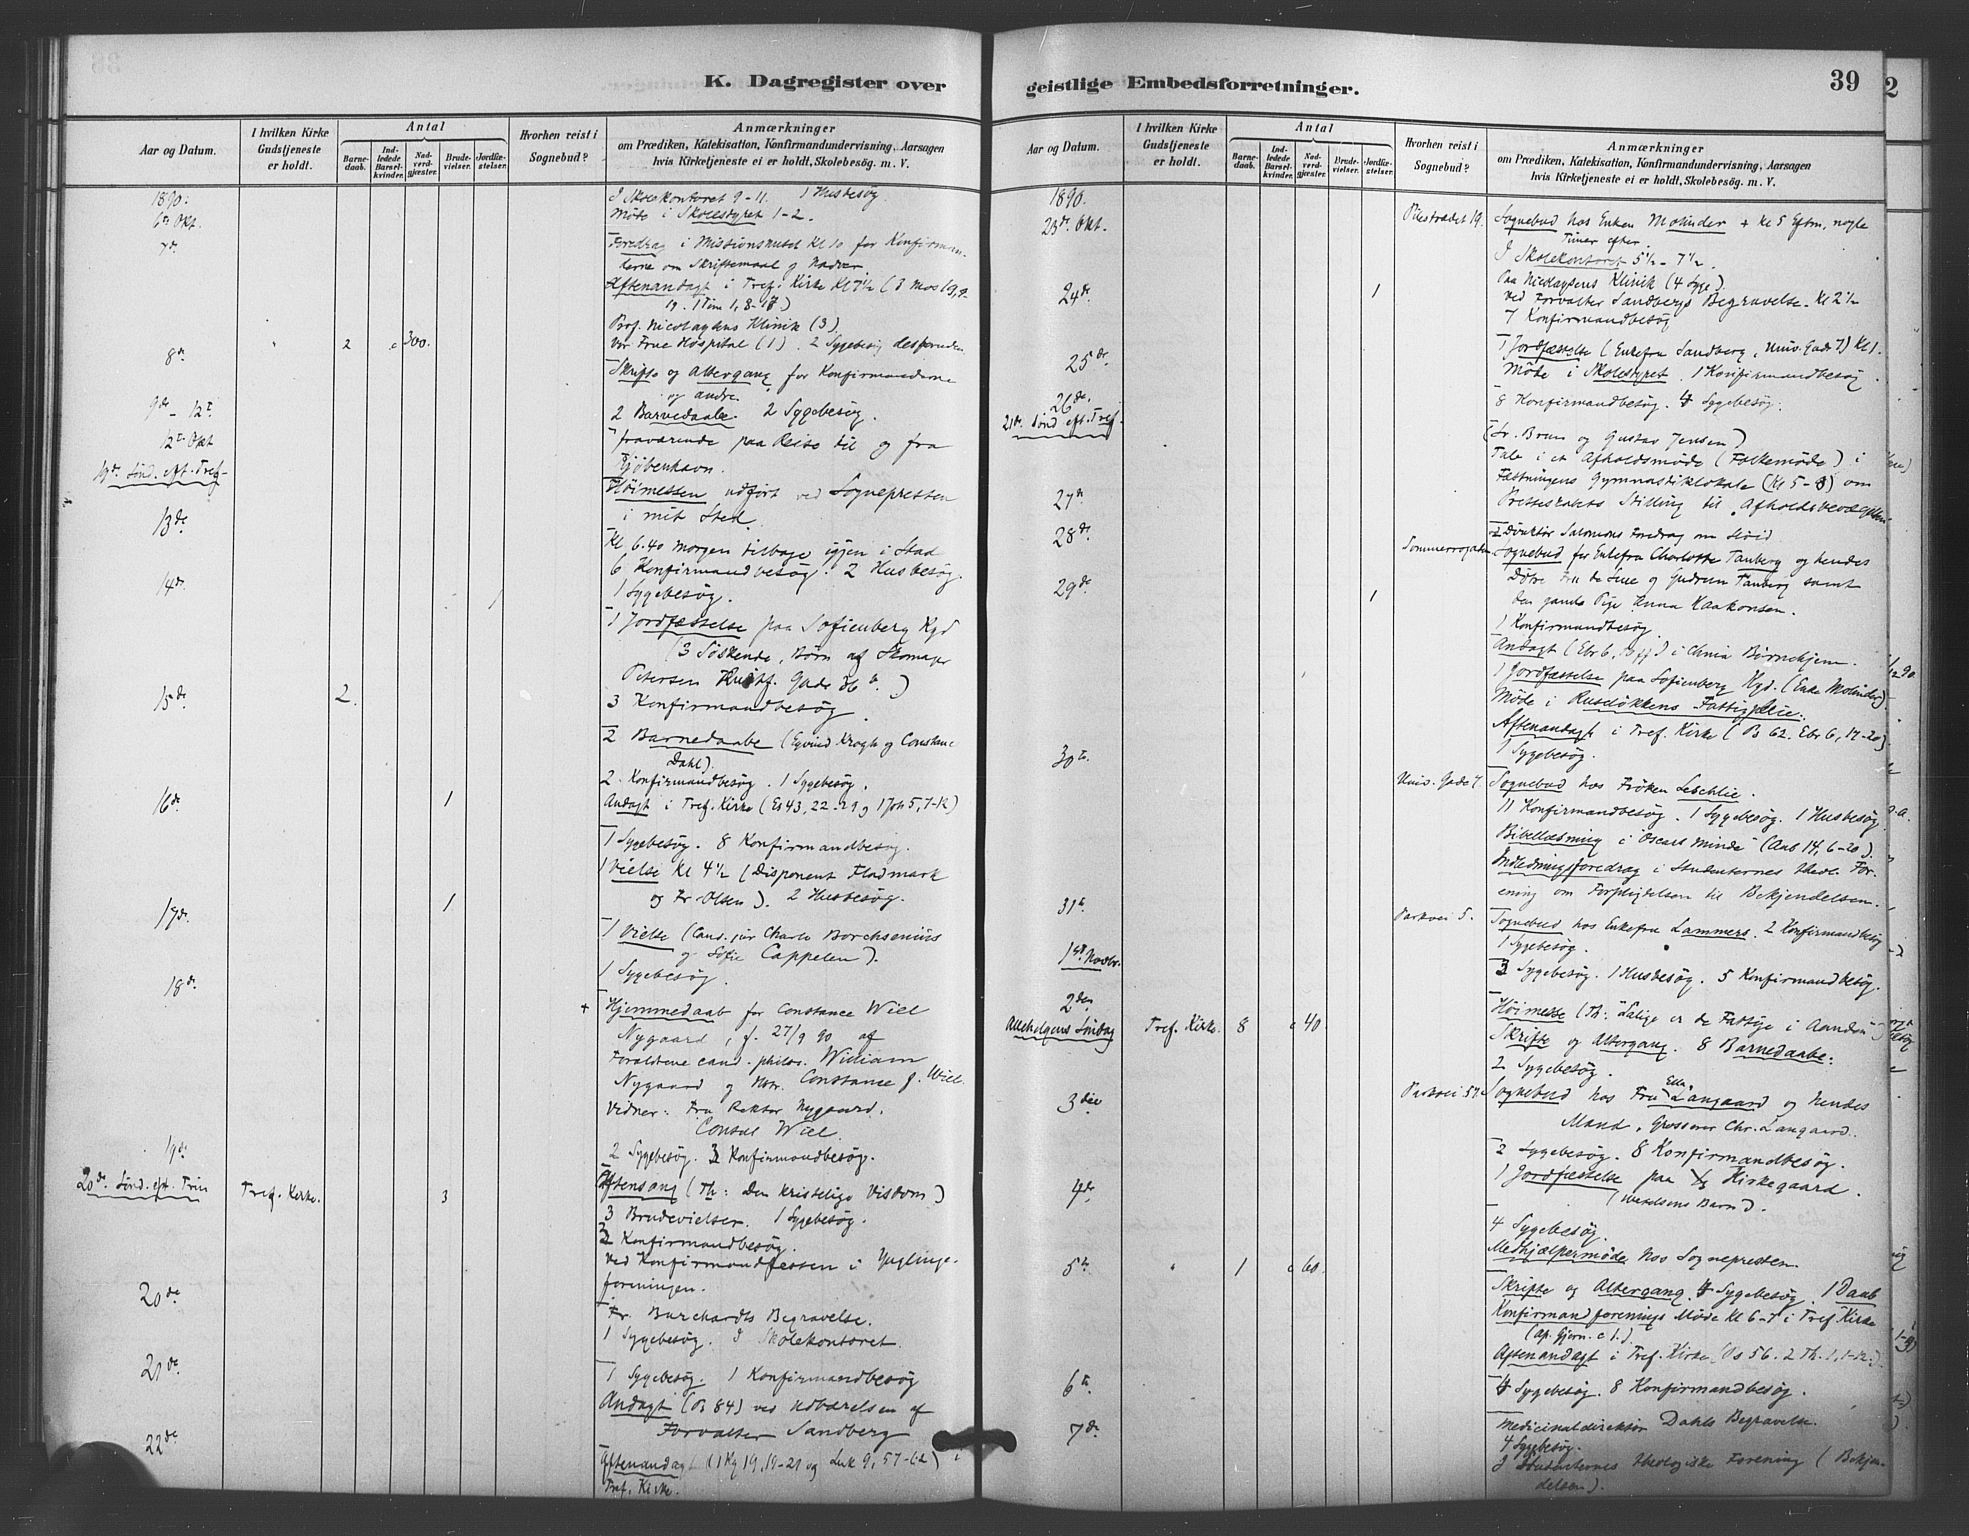 K. Dagregister over
Aar og Datum.
I hvilken Kirke Gudstjeneste er holdt.
Antal
Barne- daab.
Ind- ledede Barsel- kvinder.
Nad- verd- gjæster.
Brude- vielser.
Jordfæ- stelser.
Hvorhen reist i Sognebud?
Anmærkninger
om Prædiken, Katekisation, Konfirmandundervisning, Aarsagen
hvis Kirketjeneste ei er holdt, Skolebesøg. m. V.
1890.
6te Okt.
I Skolekontoret 9-11. 1 Husbesøg
Møde i Skolestyret 1-2.
7de
Foredrag i Missionshuset Kl 10 for Konfirman-
terne om Skriftemaal og Nadver.
Aftenandagt i Tref. Kirke Kl 7½
Prof. Nicolaysens Klinik (3).
Vor Frue Hospital (1). 2 Sygebesøg desforuden
8de " 2 c 300.
Skrifte og Altergang for Konfirmanderne
og andre.
2 Barnedaabe. 2 Sygebesøg.
9de - 12te
fraværende paa Reise til og fra
Kjøbenhavn.
12te Okt
19de Sønd. eft. Tref.
Høimessen udført ved Sognepresten
i mit Sted.
13de
Kl. 6.40 morgen tilbage igjen i Stad
6 Konfirmandbesøg. 2 Husbesøg.
1 Sygebesøg.
14de 1
1 Jordfæstelse paa Sofienberg Kgd
(3 Søskende, Børn af Skomager
Petersen
3 Konfirmandbesøg
15de 2.
2 Barnedaabe (Eyvind Krogh og Constance
Dahl).
2 Konfirmandbesøg. 1 Sygebesøg.
Andagt i Tref. Kirke (Es 43, 22-29 og 1 Joh 5, 7-12)
16de 1
1 Sygebesøg. 8 Konfirmandbesøg.
1 Vielse Kl 4½ (Disponent Flodmark
og Fr. Olsen). 2 Husbesøg.
17de 1
1 Vielse (Cand. jur Charles Borchsenius
og Sofie Cappelen).
1 Sygebesøg.
18de
+ Hjemmedaab for Constance Wiel
Nygaard, f. 27/9 90 af
Forældrene cand. philos. William
Nygaard og Hstr. Constance f. Wiel.
Vidner: Fru Rektor Nygaard.
Consul Wiel.
2 Sygebesøg. 3 Konfirmandbesøg.
19de
20de Sønd. eft. Trin Tref. Kirke. 3
Aftensang (Th: Den kristelige Visdom)
3 Brudevielser. 1 Sygebesøg.
Konfirmandbesøg.
Ved Konfirmandfesten i Ynglinge-
foreningen.
20de
Fr. Burchardts Begravelse.
1 Sygebesøg. I Skolekontoret.
21de
1 Sygebesøg. 1 Konfirmandbesøg
Andagt (Ps 84) ved Udbærelsen af
Forvalter Sandberg
22de
Aftenandagt (1 Kg 19, 19-21 og Luk 9, 57-62) i
Tref. Kirke.
geistlige Embedsforretninger.
39
Aar og Datum.
I hvilken Kirke Gudstjeneste er holdt.
Antal
Barne- daab.
Ind- ledede Barsel- kvinder.
Nad- verd- gjæster.
Brude- vielser.
Jordfæ- stelser.
Hvorhen reist i Sognebud?
Anmærkninger
om Prædiken, Katekisation, Konfirmandundervisning, Aarsagen
hvis Kirketjeneste ei er holdt, Skolebesøg. m. V.
1890.
23de Okt. Pilestrædet 19.
Sognebud hos Enken Molinder + kl 5 Eftm, nogle
Timer efter.
I Skolekontoret 5½-7½.
Paa Nicolaysens Klinik (4 Syge).
24de 1
Ved Forvalter Sandbergs Begravelse Kl 2½
7 Konfirmandbesøg
25de
1 Jordfæstelse (Enkefru Sandberg, Univ. Gade 7) Kl 1.
Møde i Skolestyret. 1 Konfirmandbesøg.
8 Konfirmandbesøg. 4 Sygebesøg.
26de.
21de Sønd eft. Tref.
(Dr. Brun og Gustav Jensen)
Tale i et Afholdsmøde (Folkemøde) i
Fæstningens Gymnastiklokale (Kl 5-8) om
Presteskabets Stilling til "Afholdsbevægelsen"
27de
Direktør Salomons Foredrag om Sløid
28de Sommerrogaden
Sognebud for Enkefru Charlotte Tanberg og hendes
Døtre Fru de Seue og Gudrun Tanberg samt
den gamle Pige Anna Haakonsen.
1 Konfirmandbesøg.
29de 1
Andagt (Ebr 6, ) i Chnia Børnehjem.
1 Jordfæstelse paa Sofienberg Kgd. (Enke Molinder)
Møde i Ruseløkkens Fattigpleie.
Aftenandagt i Tref. Kirke (Ps 62. Ebr 6, 17-20)
1 Sygebesøg.
30te. Univ. Gade 7.
Sognebud hos Frøken Leschlie.
11 Konfirmandbesøg. 1 Sygebesøg. 1 Husbesøg
Bibellæsning i Oscars Minde (Aab 14, 6-20).
Indledningsforedrag i Studenternes theol. For-
ening om Forpligtelsen til Bekjendelsen.
31te Parkvei 5.
Sognebud hos Enkefru Lammers. 2 Konfirmandbesøg
1 Sygebesøg.
1ste Novbr.
3 Sygebesøg. 1 Husbesøg. 5 Konfirmandbesøg.
2den
Allehelgens Søndag Tref. Kirke. 8 c 40.
Høimesse (Th: Salige er de Fattige i Aanden)
Skrifte og Altergang. 8 Barnedaabe.
2 Sygebesøg.
3die Parkvei 57.
Sognebud hos Fru Ella Langaard og hendes
Mand, Grosserer Chr. Langaard.
2 Sygebesøg. 8 Konfirmandbesøg.
4de
1 Jordfæstelse paa Kirkegaard.
4 Sygebesøg.
Medhjælpermøde hos Sognepresten.
5te " 1 c 60.
Skrifte og Altergang. 4 Sygebesøg. 1 Daab
Konfirmandforenings Møde Kl 6-7 i Tref Kirke
(Ap. Gjern. c 1.)
Aftenandagt i Tref. Kirke (Ps 56. 2 Th. 1, 1-12.)
6te
4 Sygebesøg. 8 Konfirmandbesøg.
7de
Medicinaldirektør Dahls Begravelse.
4 Sygebesøg.
I Studenternes theologiske Forening (Bekjen-
delsen).